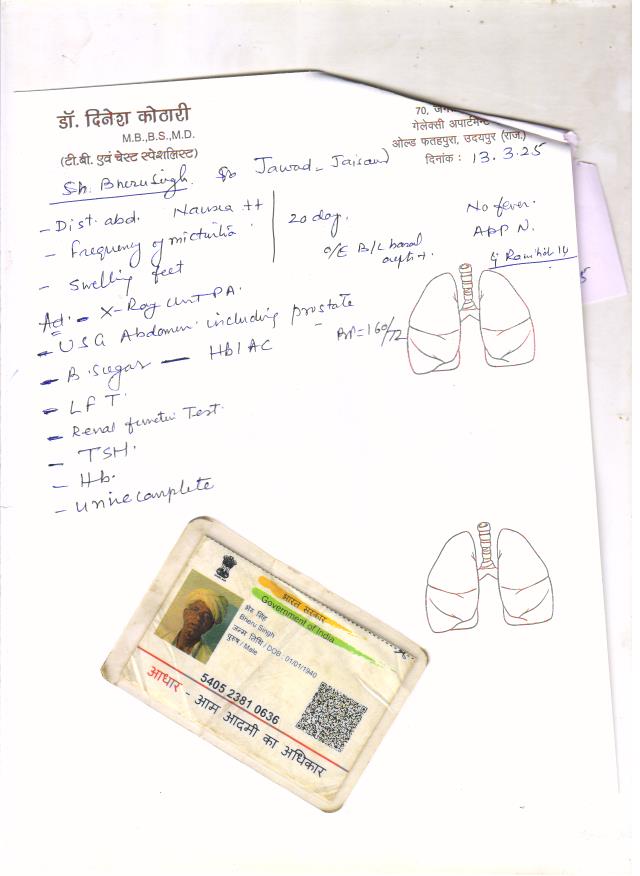 डॉ. दिनेश कोठारी
M.B.,B.S.,M.D.
(टी.बी. एवं चेस्ट स्पेशलिस्ट)
70,
गेलेक्सी अपार्टमेन्ट
ओल्ड फतहपुरा, उदयपुर (राज.)
दिनांक : 13.3.25
Sh. Bheru Singh Jawad
- Dist. abd. Nausea ++
- Frequency of
- Swelling feet
20 day.
O/E B/L basal
No fever.
APP N.
Ad. - X-Ray PA.
- USG Abdomen including prostate
BP = 160/72
- B. Sugar - Hb1AC
- LFT
- Renal Test.
- TSH.
- Hb.
- Urine complete
भारत सरकार
Government of India
भेरू सिंह
Bheru Singh
जन्म तिथि / DOB : 01/01/1940
पुरुष / Male
5405 2381 0636
आधार - आम आदमी का अधिकार